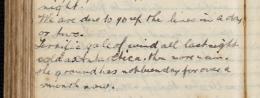 night.
We are due to go up the lines in a day
or two.
Terrific gale of wind all last night
cold as Antarctica, then more rain.
the ground has not been dry for over a
month now.